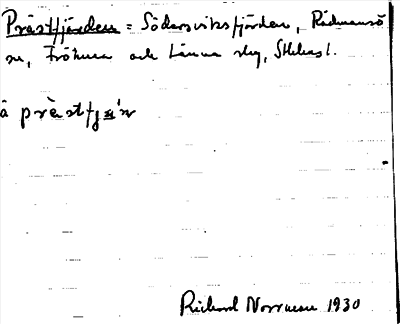 Prästfjärden = Södersviksfjärden, Rådmansö
sn, Frötuna och Länna skg, Sthlms l.
å prä̀stfjæ̣'ṇ
Rickard Norrman 1930